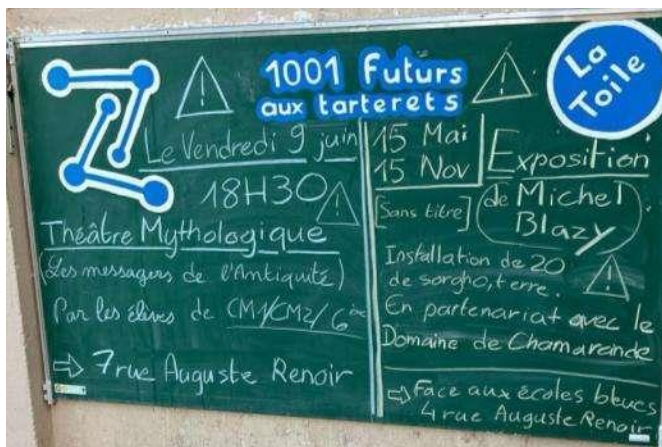 1001 Futurs
aux tarterets
La
Toile
Le Vendredi 9 juin
18H30
Théâtre Mythologique
(Les messagers de l'Antiquité)
Par les élèves de CM1/CM2/6ème
⇨ 7 rue Auguste Renoir
15 Mai
15 Nov
Exposition
de Michel
Blazy
[Sans titre]
Installation de 20
de sorgho, terre.
En partenariat avec le
Domaine de Chamarande
⇨ Face aux écoles bleues
4 rue Auguste Renoir